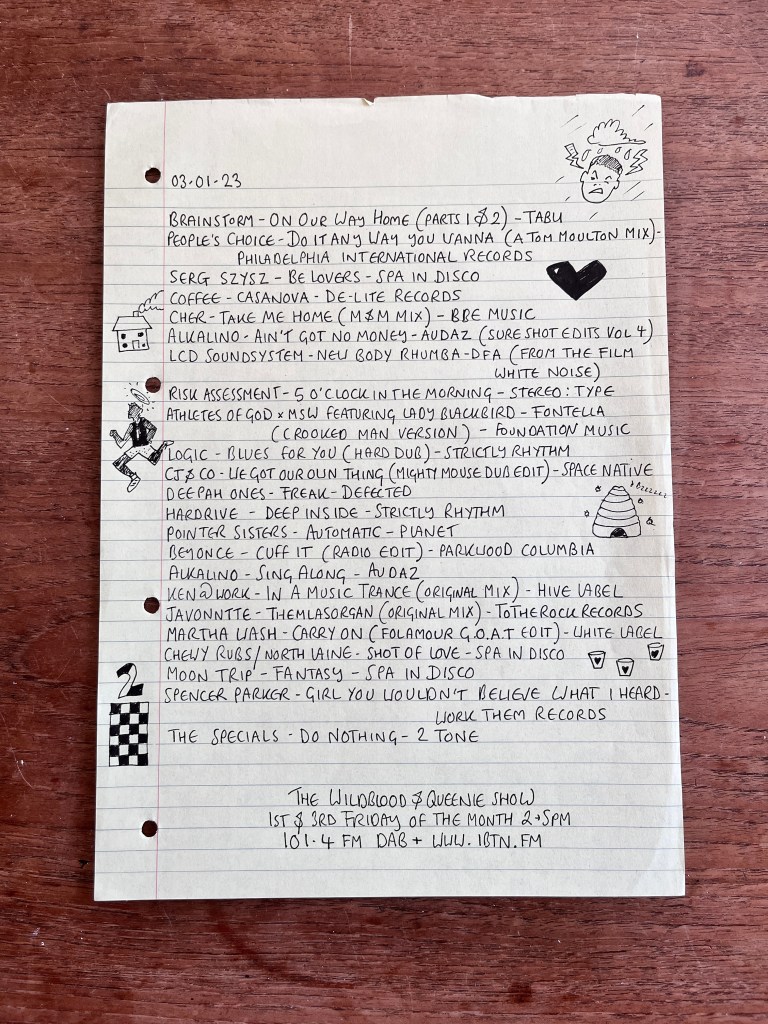 03.01.23
BRAINSTORM - ON OUR WAY HOME (PARTS 1 & 2) - TABU
PEOPLE'S CHOICE - DO IT ANY WAY YOU WANNA (A TOM MOULTON MIX) -
PHILADELPHIA INTERNATIONAL RECORDS
SERG SZYSZ - BE LOVERS - SPA IN DISCO
COFFEE - CASANOVA - DE-LITE RECORDS
CHER - TAKE ME HOME (M&M MIX) - BBE MUSIC
ALKALINO - AIN'T GOT NO MONEY - AUDAZ (SURE SHOT EDITS VOL 4)
LCD SOUNDSYSTEM - NEW BODY RHUMBA - DFA (FROM THE FILM
WHITE NOISE)
RISK ASSESSMENT - 5 O'CLOCK IN THE MORNING - STEREO:TYPE
ATHLETES OF GOD x MSW FEATURING LADY BLACKBIRD - FONTELLA
(CROOKED MAN VERSION) - FOUNDATION MUSIC
LOGIC - BLUES FOR YOU (HARD DUB) - STRICTLY RHYTHM
CJ & CO - WE GOT OUR OWN THING (MIGHTY MOUSE DUB EDIT) - SPACE NATIVE
DEEPAH ONES - FREAK - DEFECTED
HARDRIVE - DEEP INSIDE - STRICTLY RHYTHM
POINTER SISTERS - AUTOMATIC - PLANET
BEYONCE - CUFF IT (RADIO EDIT) - PARKWOOD COLUMBIA
ALKALINO - SING ALONG - AUDAZ
KEN@WORK - IN A MUSIC TRANCE (ORIGINAL MIX) - HIVE LABEL
JAVONNTTE - THEMLASORGAN (ORIGINAL MIX) - TOTHEROCK RECORDS
MARTHA WASH - CARRY ON (FOLAMOUR G.O.A.T EDIT) - WHITE LABEL
CHEWY RUBS/NORTH LAINE - SHOT OF LOVE - SPA IN DISCO
MOON TRIP - FANTASY - SPA IN DISCO
2
SPENCER PARKER - GIRL YOU WOULDN'T BELIEVE WHAT I HEARD -
WORK THEM RECORDS
THE SPECIALS - DO NOTHING - 2 TONE
THE WILDBLOOD & QUEENIE SHOW
1ST & 3RD FRIDAY OF THE MONTH 2-5PM
101.4 FM DAB + WWW.1BTN.FM